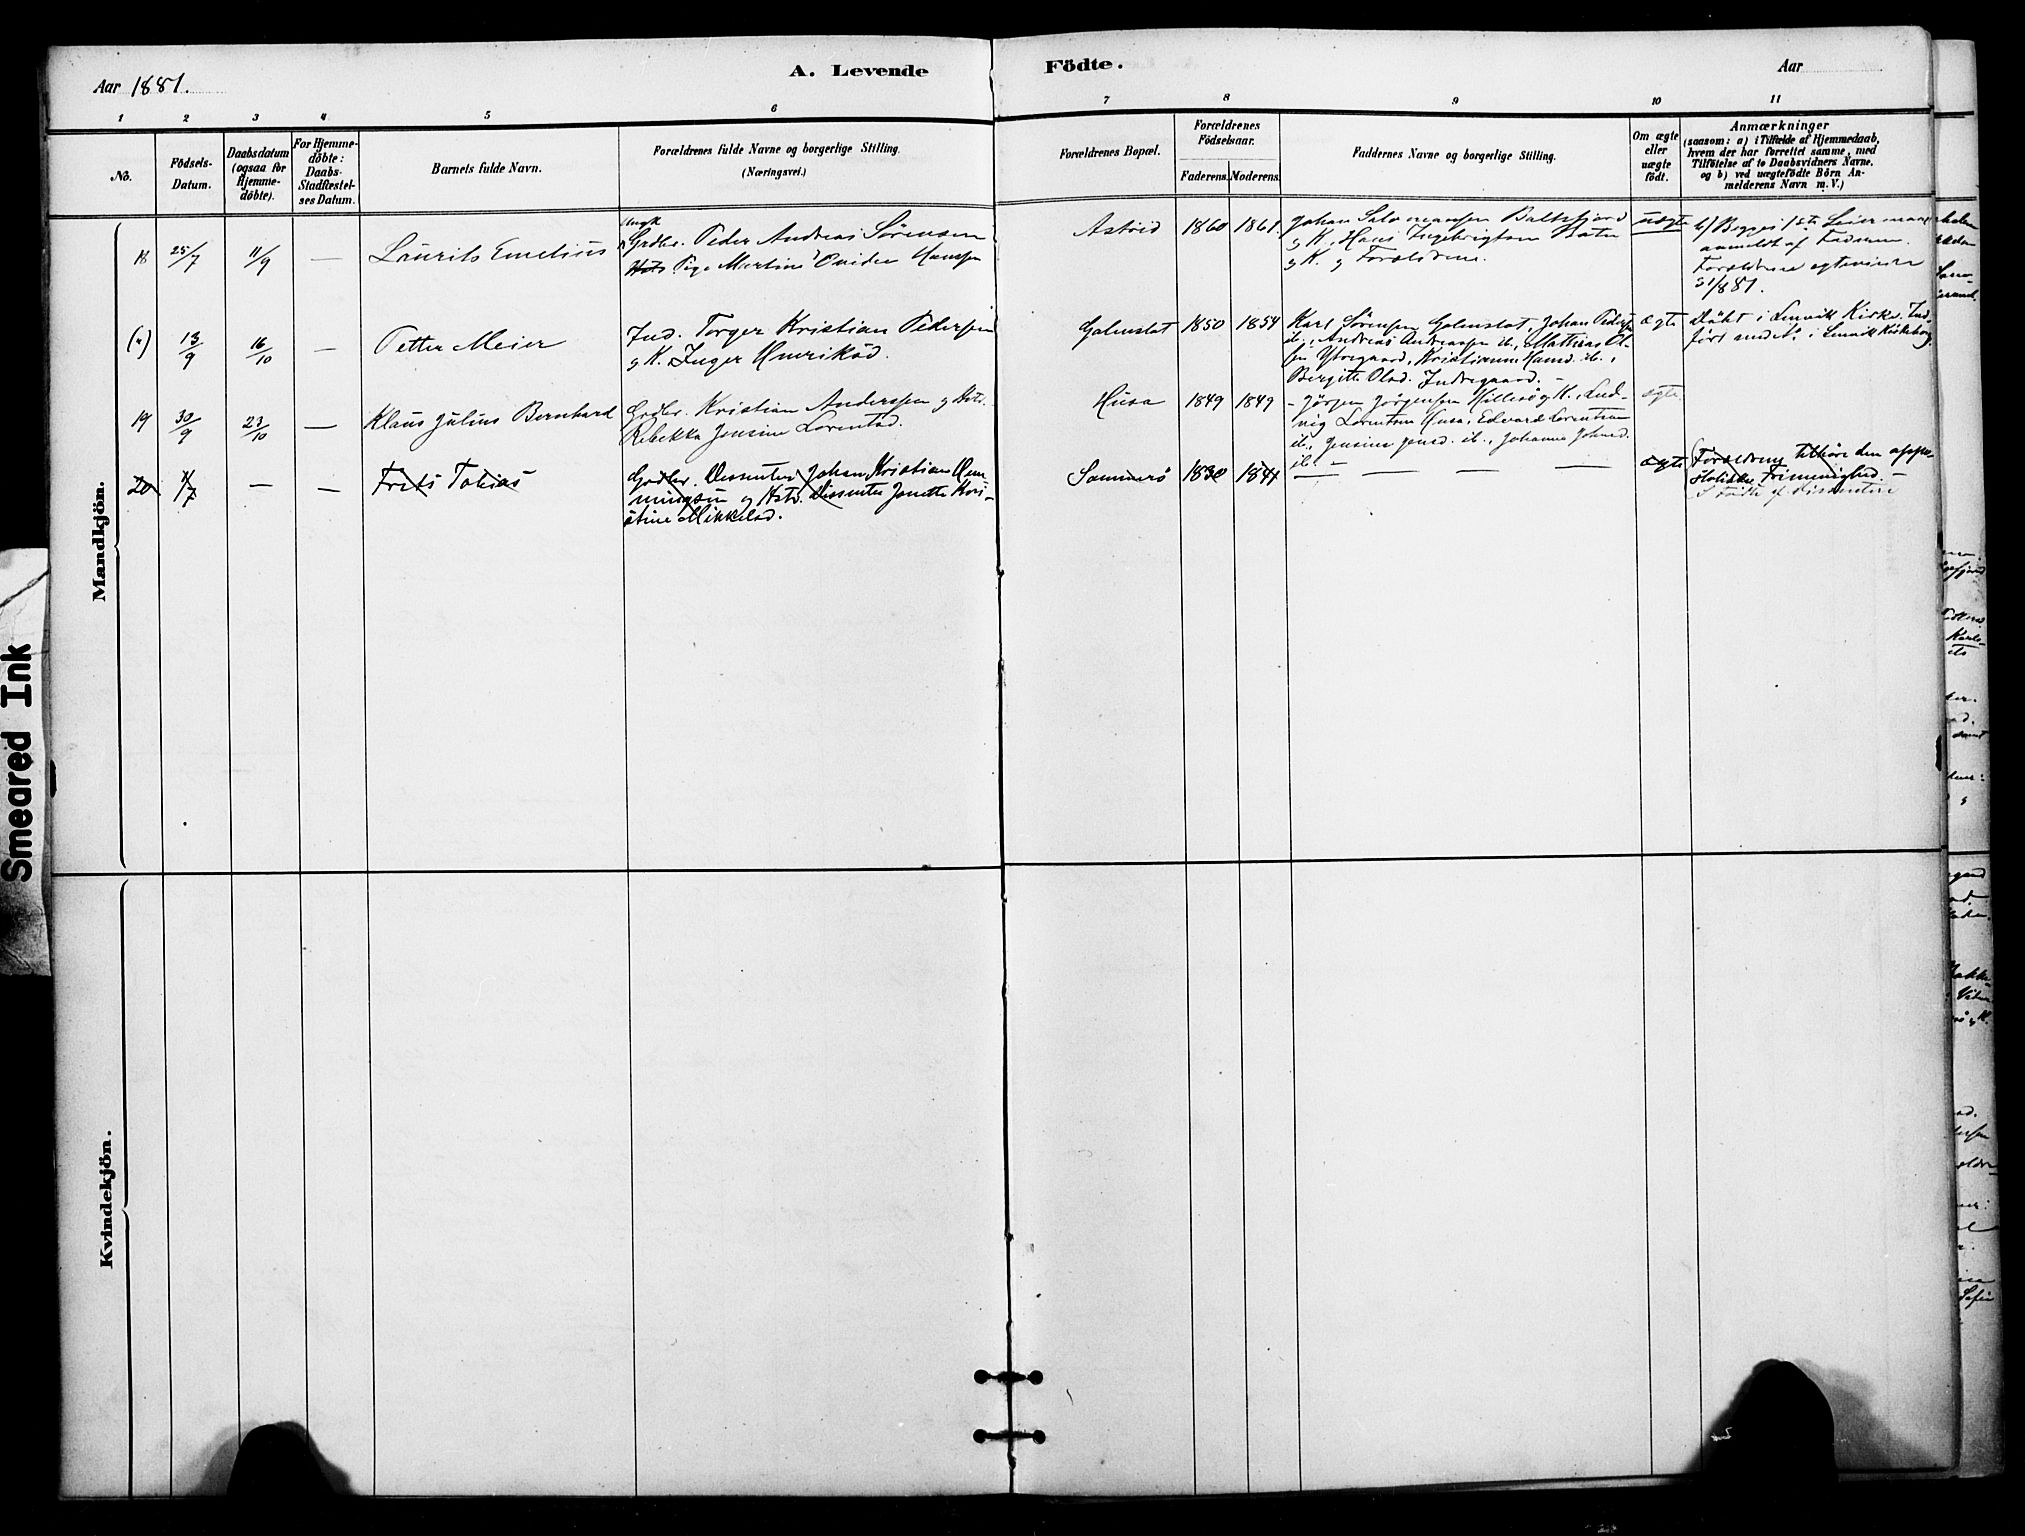 Aar 1881.
A. Levende
Födte.
Aar
1 2 3 4 5 6 7 8 9 10 11
No.
Födsels-
Datum.
Daabsdatum
(ogsaa for
Hjemme-
döbte).
For Hjemme-
döbte:
Daabs-
Stadfæstel-
ses Datum.
Barnets fulde Navn.
Forældrenes fulde Navne og borgerlige Stilling.
(Næringsvei.)
Forældrenes Bopæl.
Forældrenes
Födselsaar.
Faderens. Moderens.
Faddernes Navne og borgerlige Stilling.
Om ægte
eller
uægte
födt.
Anmærkninger
(saasom: a) i Tilfælde af Hjemmedaab,
hvem der har forrettet samme, med
Tilföielse af to Daabsvidners Navne.
og b) ved uægtefödte Börn An-
melderens Navn m. V.)
Mandkjön.
18 25/7 11/9 — Laurits Emelius
Ungk
Grdbr. Peder Andreas Sørensen
Pige Martine Ovidia Hansen
Astrid 1860 1861.
Johan Salomonsen Baltsfjord
og K., Hans Ingebrigtsen
og K. og Forældrene.
uægte
b) Begges 1ste Leiermaal
anmeldt af Faderen.
Forældrene egteviede
21/8 81.
(") 13/9 16/10 — Petter Meier
Ind. Torger Kristian Pedersen
og K. Inger Henriksd.
Golmstat 1850 1854
Karl Sørensen Golmstat, Johan Peders
ib., Andreas Andreassen ib., Mathias Ol-
sen Ytregaard, Kristianne Hansd. ib.,
Bergitte Olsd. Indregaard. —
ægte
Døbt i Lenvik Kirke. Ind-
ført under No i Lenvik Kirkebog.
19 30/9 23/10 — Klaus Julius Bernhard
Grdbr. Kristian Anderssen og Hstr.
Rebekka Jensine Lorentsd.
Husa 1849 1849
Jørgen Jørgensen Hillesø og K., Lud-
vig Lorentsen Husa, Edvard Lorentsen
ib., Jensine Jensd. ib., Johanna Johnsd.
ib. —
ægte
20 — — Frits Tobias
Grdbr. Dissenter Johan Kristian Hen-
ningsen og Hstr. Dissenter Jonette Kri-
stine Mikkelsd.
Sommerø 1830 1841
— — — — —
ægte
Forældrene tilhøre den apo-
stoliske Frimenighed. —
Kvindekjön.
Smeared Ink